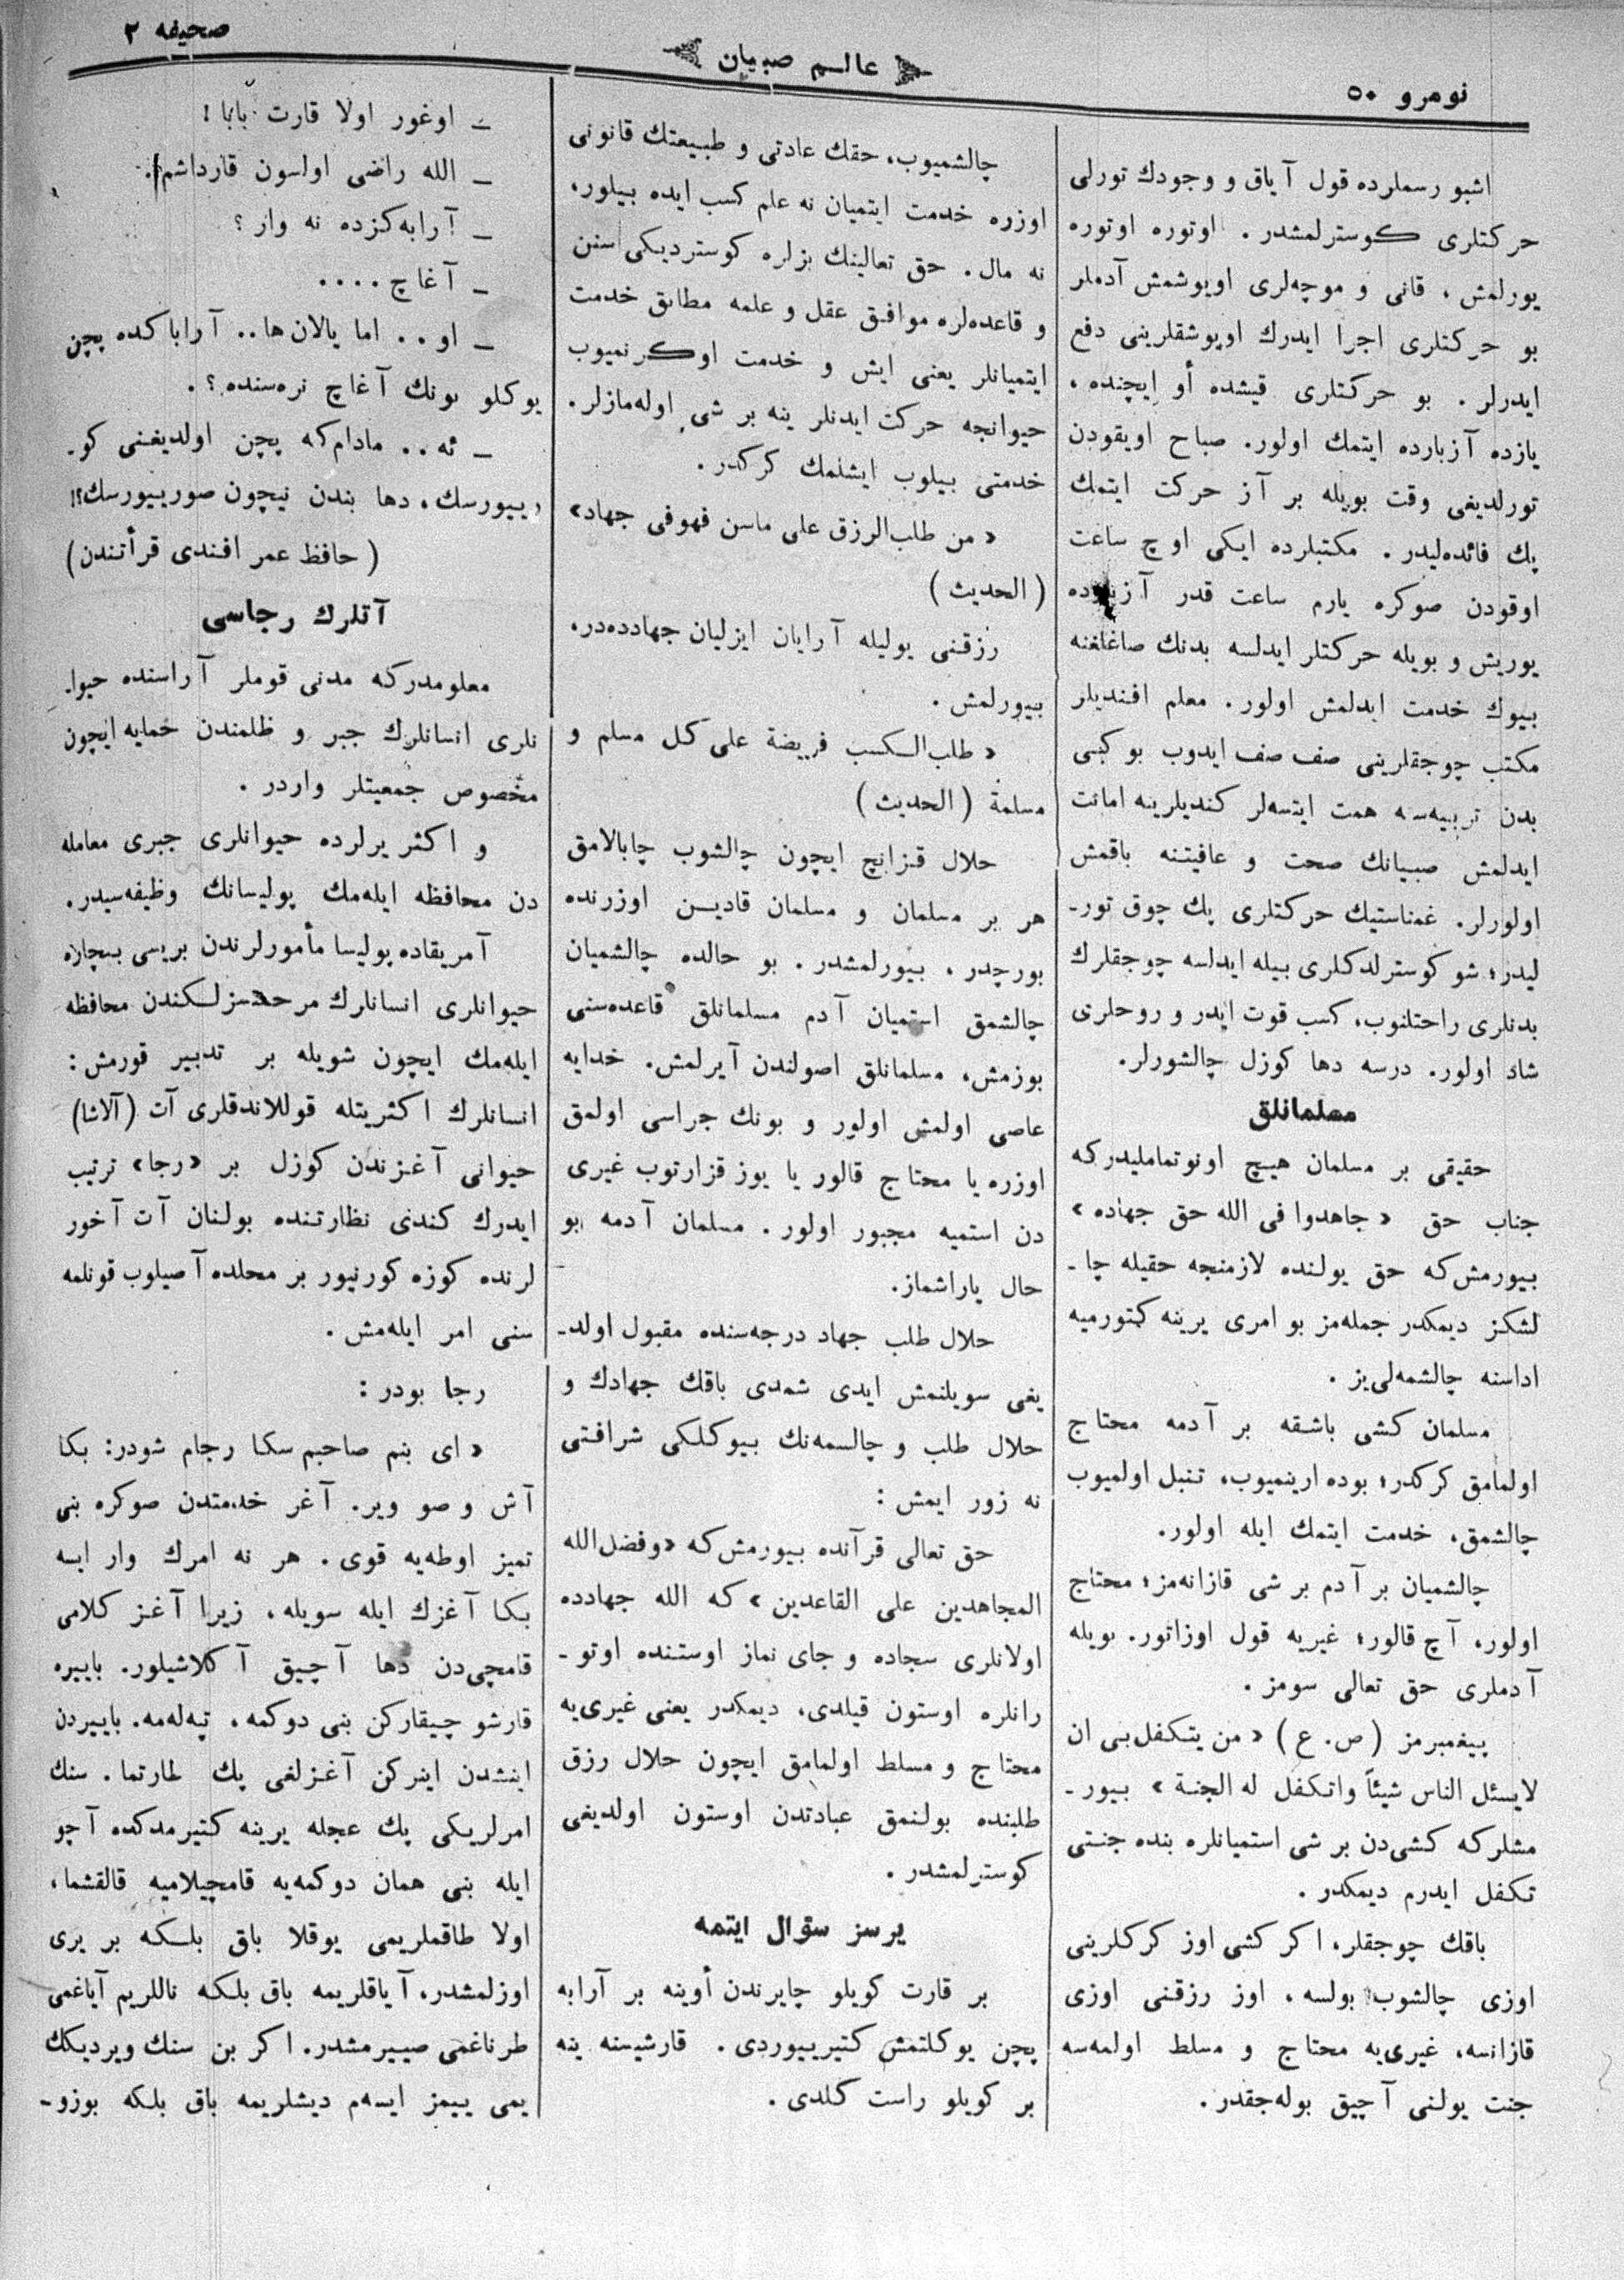 نومرو ٥٠
عالم صبيان
صحيفه ٢
اشبو رسملرده قول آياق و وجودك تورلى
حركتلرى كوسترلمشدر. اوتوره اوتوره
يورلمش، قانى و موچه‌لرى اويوشمش آدملر
بو حركتلرى اجرا ايدرك اويوشقلرينى دفع
ايدرلر. بو حركتلرى قيشده أو ايچنده،
يازده آزبارده ايتمك اولور. صباح اويقودن
تورلديغى وقت بويله بر آز حركت ايتمك
پك فائده‌ليدر. مكتبلرده ايكى اوچ ساعت
اوقودن صوكره يارم ساعت قدر آزبارده
يوريش و بويله حركتلر ايدلسه بدنك صاغلغنه
بيوك خدمت ايدلمش اولور. معلم افنديلر
مكتب چوجقلرينى صف صف ايدوب بو كبى
بدن تربيه‌سه همت ايتسه‌لر كنديلرينه امانت
ايدلمش صبيانك صحت و عافيتنه باقمش
اولورلر. غمناستيك حركتلرى پك چوق تور-
ليدر؛ شو كوسترلدكلرى بيله ايدلسه چوجقلرك
بدنلرى راحتلنوب، كسب قوت ايدر و روحلرى
شاد اولور. درسه دها كوزل چالشورلر.
مسلمانلق
حقيقى بر مسلمان هيچ اونوتماملیدركه
جناب حق «جاهدوا فى الله حق جهاده»
بيورمش‌كه حق يولنده لازمنجه حقيله چا-
لشكز ديمكدر جمله‌مز بو امرى يرينه كتورميه
اداسنه چالشمه‌لى‌يز.
مسلمان كشى باشقه بر آدمه محتاج
اولمامق كركدر؛ بوده ارينميوب، تنبل اولميوب
چالشمق، خدمت ايتمك ايله اولور.
چالشميان بر آدم بر شى قازانه‌مز؛ محتاج
اولور، آچ قالور؛ غيريه قول اوزاتور. بويله
آدملرى حق تعالى سومز.
پيغمبرمز (ص. ع) «من يتكفل‌بى ان
لايسئل الناس شيئاً واتكفل له الجنة» بيور-
مشلركه كشى‌دن بر شى استميانلره بنده جنتى
تكفل ايدرم ديمكدر.
باقك چوجقلر، اكر كشى اوز كركلرينى
اوزى چالشوب بولسه، اوز رزقنى اوزى
قازانسه، غيرى‌يه محتاج و مسلط اولمه‌سه
جنت يولنى آچيق بوله‌جقدر.
چالشميوب، حقك عادتى و طبيعتك قانونى
اوزره خدمت ايتميان نه علم كسب ايده بيلور،
نه مال. حق تعالينك بزلره كوسترديكى سنن
و قاعده‌لره موافق عقل و علمه مطابق خدمت
ايتميانلر يعنى ايش و خدمت اوكرنميوب
حيوانجه حركت ايدنلر ينه بر شى اوله‌مازلر.
خدمتى بيلوب ايشلمك كركدر.
«من طلب‌الرزق على ماسن فهوفى جهاد»
(الحديث)
رزقنى يوليله آرايان ايزليان جهادده‌در،
بيورلمش.
«طلب‌الكسب فريضة على كل مسلم و
مسلمة (الحديث)
حلال قزانچ ايچون چالشوب چابالامق
هر بر مسلمان و مسلمان قادين اوزرنده
بورچدر، بيورلمشدر. بو حالده چالشميان
چالشمق استميان آدم مسلمانلق قاعده‌سنى
بوزمش، مسلمانلق اصولندن آيرلمش. خدايه
عاصى اولمش اولور و بونك جراسى اولمق
اوزره يا محتاج قالور يا يوز قزارتوب غيرى
دن استميه مجبور اولور. مسلمان آدمه بو
حال ياراشماز.
حلال طلب جهاد درجه‌سنده مقبول اولد-
يغى سويلنمش ايدى شمدى باقك جهادك و
حلال طلب و چالسمه‌نك بيوكلكى شرافتى
نه زور ايمش:
حق تعالى قرآنده بيورمش‌كه «وفضل‌الله
المجاهدين على القاعدين» كه الله جهادده
اولانلرى سجاده و جاى نماز اوستنده اوتو-
رانلره اوستون قيلدى، ديمكدر يعنى غيرى‌يه
محتاج و مسلط اولمامق ايچون حلال رزق
طلبنده بولنمق عبادتدن اوستون اولديغى
كوسترلمشدر.
يرسز سؤال ايتمه
بر قارت كويلو چايرندن أوينه بر آرابه
پچن يوكلتمش كتيرييوردى. قارشيسنه ينه
بر كويلو راست كلدى.
– اوغور اولا قارت بابا!
– الله راضى اولسون قارداشم.
– آرابه‌كزده نه وار؟
– آغاچ....
– او.. اما يالان ها.. آراباكده پچن
يوكلو بونك آغاچ نره‌سنده؟.
– ئه.. مادام‌كه پچن اولديغنى كو-
رييورسك، دها بندن نيچون صورييورسك؟!
(حافظ عمر افندى قرأتندن)
آتلرك رجاسى
معلومدركه مدنى قوملر آراسنده حيوا-
نلرى انسانلرك جبر و ظلمندن حمايه ايچون
مخصوص جمعيتلر واردر.
و اكثر يرلرده حيوانلرى جبرى معامله
دن محافظه ايله‌مك پوليسانك وظيفه‌سيدر.
آمريقاده پوليسا مأمورلرندن بريسى بيچاره
حيوانلرى انسانلرك مرحمتسزلكندن محافظه
ايله‌مك ايچون شويله بر تدبير قورمش:
انسانلرك اكثريتله قوللاندقلرى آت (آلاشا)
حيوانى آغزندن كوزل بر «رجا» ترتيب
ايدرك كندى نظارتنده بولنان آت آخور
لرنده كوزه كورنيور بر محلده آصيلوب قونلمه
سنى امر ايله‌مش.
رجا بودر:
«اى بنم صاحبم سكا رجام شودر: بكا
آش و صو وير. آغر خدمتدن صوكره بنى
تميز اوطه‌يه قوى. هر نه امرك وار ايسه
بكا آغزك ايله سويله، زيرا آغز كلامى
قامچى‌دن دها آچيق آكلاشيلور. باييره
قارشو چيقاركن بنى دوكمه، تپه‌له‌مه. باييردن
اينشدن اينركن آغزلغى پك طارتما. سنك
امرلريكى پك عجله يرينه كتيرمدكده آچو
ايله بنى همان دوكمه‌يه قامچيلاميه قالقشما،
اولا طاقملريمى يوقلا باق بلكه بر يرى
اوزلمشدر، آياقلريمه باق بلكه ناللريم آياغمى
طرناغمى صييرمشدر. اكر بن سنك ويرديكك
يمى ييمز ايسه‌م ديشلريمه باق بلكه بوزو-